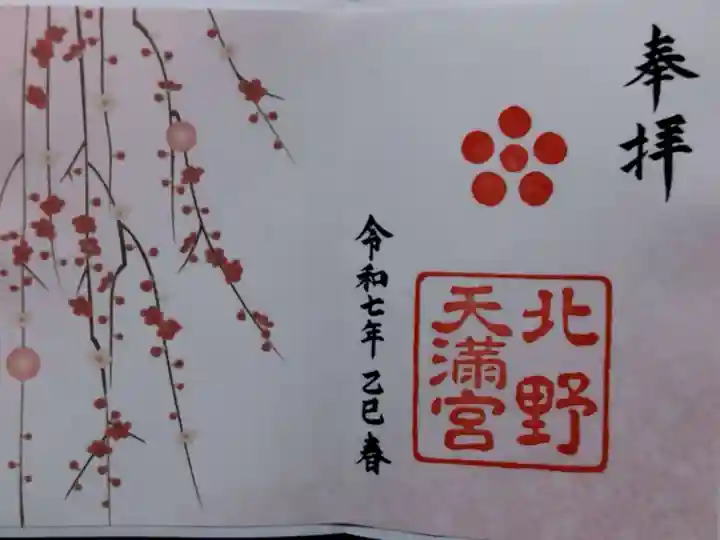 奉拝
北野
天満宮
令和七年 乙巳 春